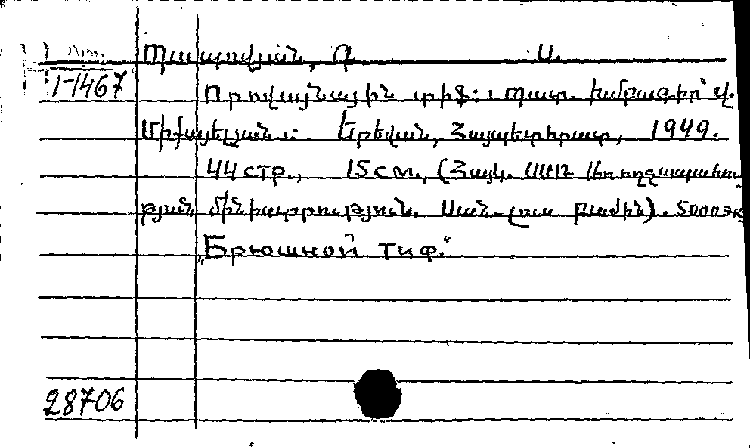 Պապովյան, Ղ. Ա.
1-1467
Որովայնային տիֆ: Պատ. խմբագիր՝ վ.
Միքայելյան: Երեվան, Հայպետհրատ, 1949.
44 стр., 15 см., (Հայկ. ՍՍՌ Առողջապահու
թյան մինիստրություն. Սան-լուս բաժին). 5000 экз
"Брюшной тиф."
28706